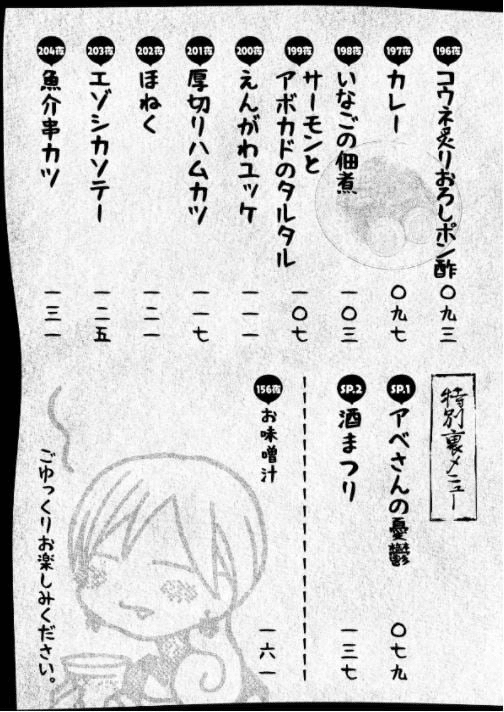 196夜 コウネ炙りおろしポン酢 〇九三
197夜 カレー 〇九七
198夜 いなごの佃煮 一〇三
199夜 サーモンと
アボカドのタルタル 一〇七
200夜 えんがわユッケ 一一一
201夜 厚切りハムカツ 一一七
202夜 ほねく 一二一
203夜 エゾシカソテー 一二五
204夜 魚介串カツ 一三一
特別裏メニュー
SP.1 アベさんの憂鬱 〇七九
SP.2 酒まつり 一三七
156夜 お味噌汁 一六一
ごゆっくりお楽しみください。